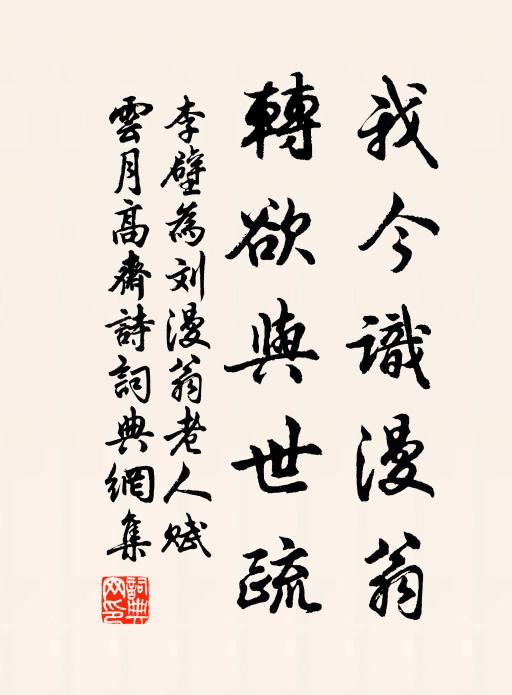 我今識漫翁
轉欲與世疏
李壁為刘漫翁老人賦
雲月高齋詩詞典網集
詞典网印